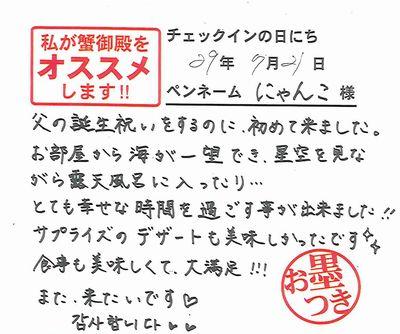 私が蟹御殿を
オススメ
します!!
チェックインの日にち
29年 7月21日
ペンネーム にゃんこ 様
父の誕生祝いをするのに、初めて来ました。
お部屋から海が一望でき、星空を見な
がら露天風呂に入ったり…
とても幸せな時間を過ごす事が出来ました!!
サプライズのデザートも美味しかったです
食事も美味しくて、大満足!!!
また、来たいです♡
감사합니다♥♥
お墨つき